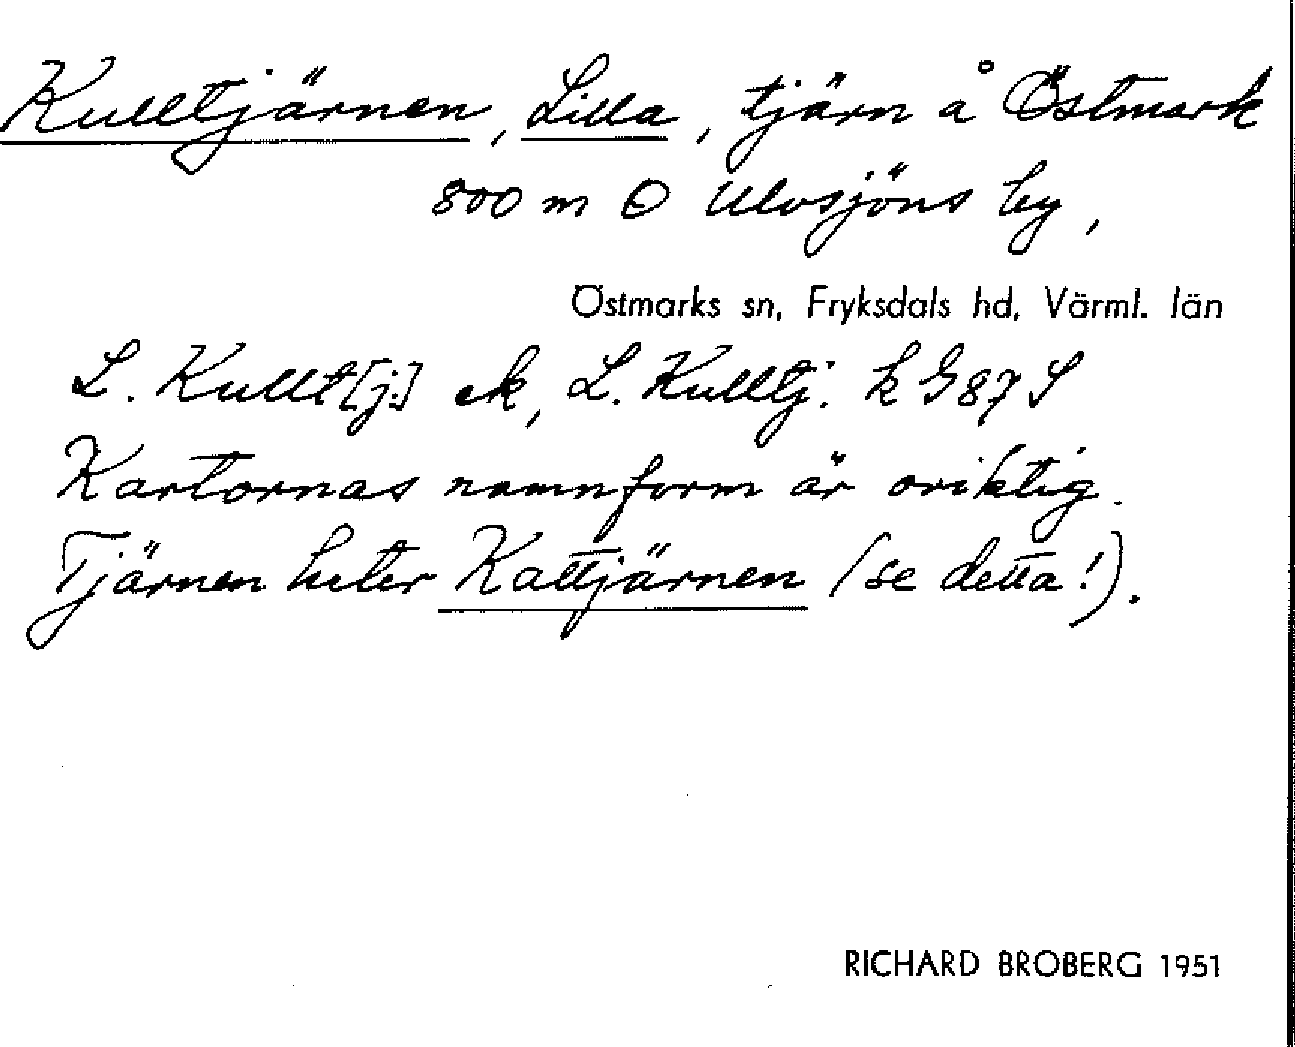 Kulltjärnen, Lilla, tjärn å Östmark
800 m O Ulvsjöns by,
Östmarks sn, Fryksdals hd, Värml. län
L. Kullt[j.] ek, L. Kulltj. k G 87 S
Kartornas namnform är oriktig.
Tjärnen heter Kattjärnen (se detta!).
RICHARD BROBERG 1951